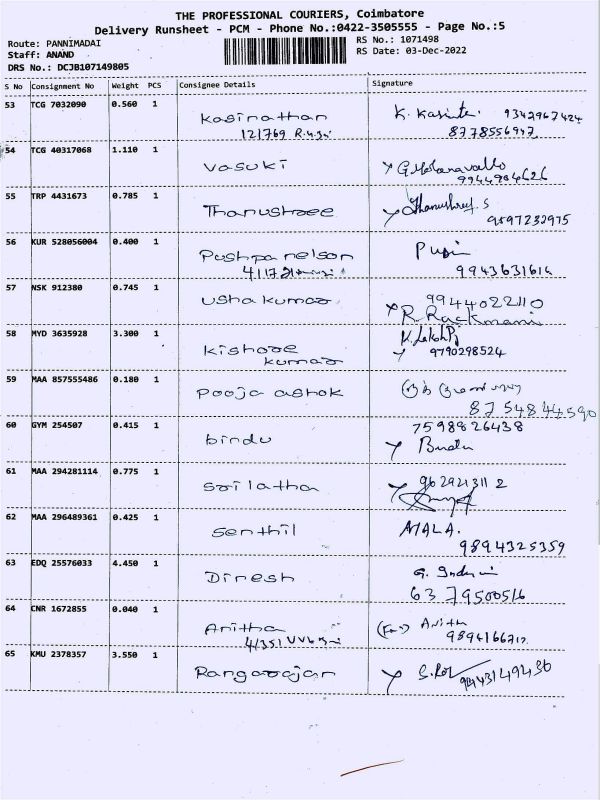 THE PROFESSIONAL COURIERS, Coimbatore
Delivery Runsheet - PCM - Phone No.:0422-3505555 - Page No.:5
Route: PANNIMADAI
RS No.: 1071498
Staff: ANAND
RS Date: 03-Dec-2022
DRS No.: DCJB107149805
S No Consignment No Weight PCS Consignee Details Signature
53 TCG 7032090 0.560 1 Kasinathan 9342967424
8778556947
54 TCG 40317068 1.110 1
Vasuki
9944904626
55 TRP 4431673 0.785 1
Thanushree Thanushree. S
9597232975
56 KUR 528056004 0.400 1
Pushpa nelson
9943631614
57 NSK 912380 0.745 1
Usha kumar 9944022110
R. Rackmani
58 MYD 3635928 3.300 1
Kishore 9790298524
kumar
59 MAA 857555486 0.180 1
Pooja ashok
8754844590
60 GYM 254507 0.415 1 7598826438
bindu Bindu
61 MAA 294281114 0.775 1
Srilatha 9629213112
62 MAA 296489361 0.425 1
Senthil MALA.
9894325359
63 EDQ 25576033 4.450 1
Dinesh
6379500516
64 CNR 1672855 0.040 1
Anitha
65 KMU 2378357 3.550 1
Rangarajan 9443149430